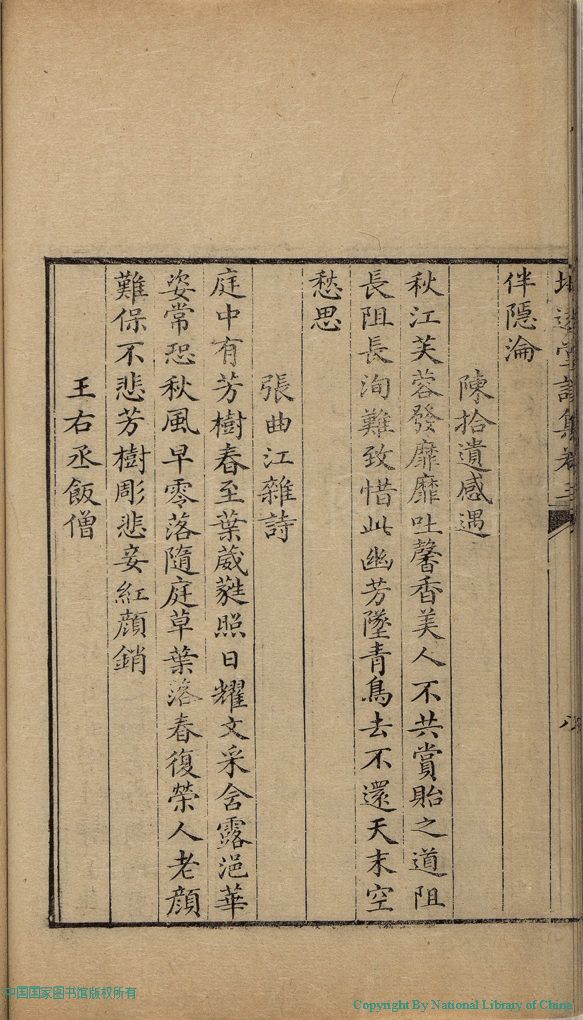 伴隱淪
陳拾遺感遇
秋江芙蓉發靡靡吐馨香美人不共賞貽之道阻
長阻長洵難致惜此幽芳墜青鳥去不還天末空
愁思
張曲江雜詩
庭中有芳樹春至葉葳蕤照日耀文采含露浥華
姿常恐秋風早零落隨庭草葉落春復榮人老顔
難保不悲芳樹彫悲妾紅顔銷
王右丞飯僧
中国国家图书馆版权所有
Copyright By National Library of China